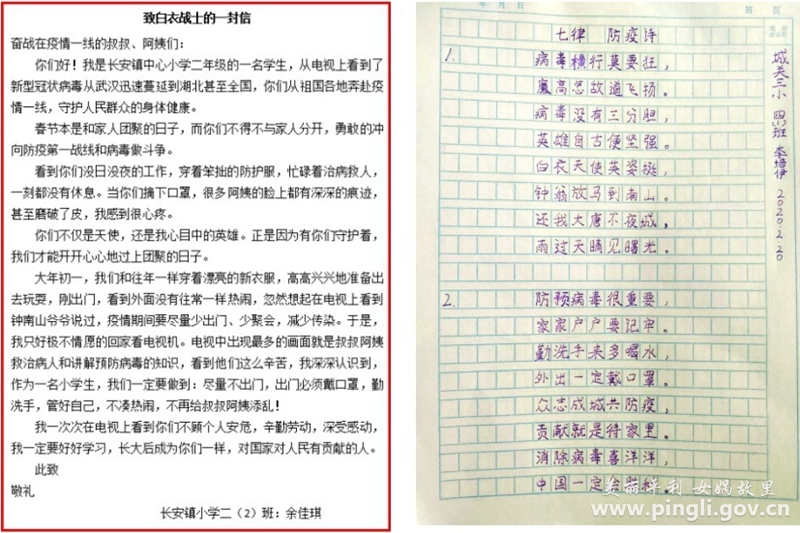 致白衣战士的一封信
奋战在疫情一线的叔叔、阿姨们：
你们好！我是长安镇中心小学二年级的一名学生，从电视上看到了
新型冠状病毒从武汉迅速蔓延到湖北甚至全国，你们从祖国各地奔赴疫
情一线，守护人民群众的身体健康。
春节本是和家人团聚的日子，而你们不得不与家人分开，勇敢的冲
向防疫第一战线和病毒做斗争。
看到你们没日没夜的工作，穿着笨拙的防护服，忙碌着治病救人，
一刻都没有休息。当你们摘下口罩，很多阿姨的脸上都有深深的痕迹，
甚至磨破了皮，我感到很心疼。
你们不仅是天使，还是我心目中的英雄。正是因为有你们守护着，
我们才能开开心心地过上团聚的日子。
大年初一，我们和往年一样穿着漂亮的新衣服，高高兴兴地准备出
去玩耍，刚出门，看到外面没有往常一样热闹，忽然想起在电视上看到
钟南山爷爷说过，疫情期间要尽量少出门、少聚会，减少传染。于是，
我只好极不情愿的回家看电视机。电视中出现最多的画面就是叔叔阿姨
救治病人和讲解预防病毒的知识，看到他们这么辛苦，我深深认识到，
作为一名小学生，我们一定要做到：尽量不出门，出门必须戴口罩，勤
洗手，管好自己，不凑热闹，不再给叔叔阿姨添乱！
我一次次在电视上看到你们不顾个人安危，辛勤劳动，深受感动，
我一定要好好学习，长大后成为你们一样，对国家对人民有贡献的人。
此致
敬礼
长安镇小学二（2）班：余佳琪
年 月 日
页
七律 防疫诗
1.
病毒横行莫要狂，
魔高怎敌道飞扬。
病毒没有三分胆，
英雄自古便坚强。
白衣天使英姿挺，
钟翁放马到南山。
还我大唐不夜城，
雨过天晴见曙光。
2.
防预病毒很重要，
家家户户要记牢。
勤洗手来多喝水，
外出一定戴口罩。
众志成城共防疫，
贡献就是待家里。
消除病毒喜洋洋，
中国一定会
城关三小 四(1)班 李培伊 2020.2.20
美丽平利 女娲故里
www.pingli.gov.cn